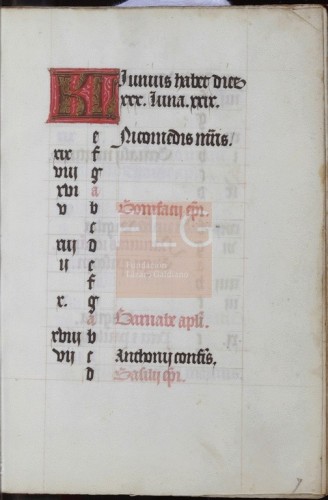 KL Junius habet dies
xxx. luna. xxix.
e Nicomedis mris.
xix f
viij g
xvi a
v b Bonifacij epi.
c
xiij d
ij e
f
x. g
a Barnabe apli.
xviij b
vij c Anthonij confis.
d Basilij epi.
FLG
Fundación
Lázaro Galdiano
7